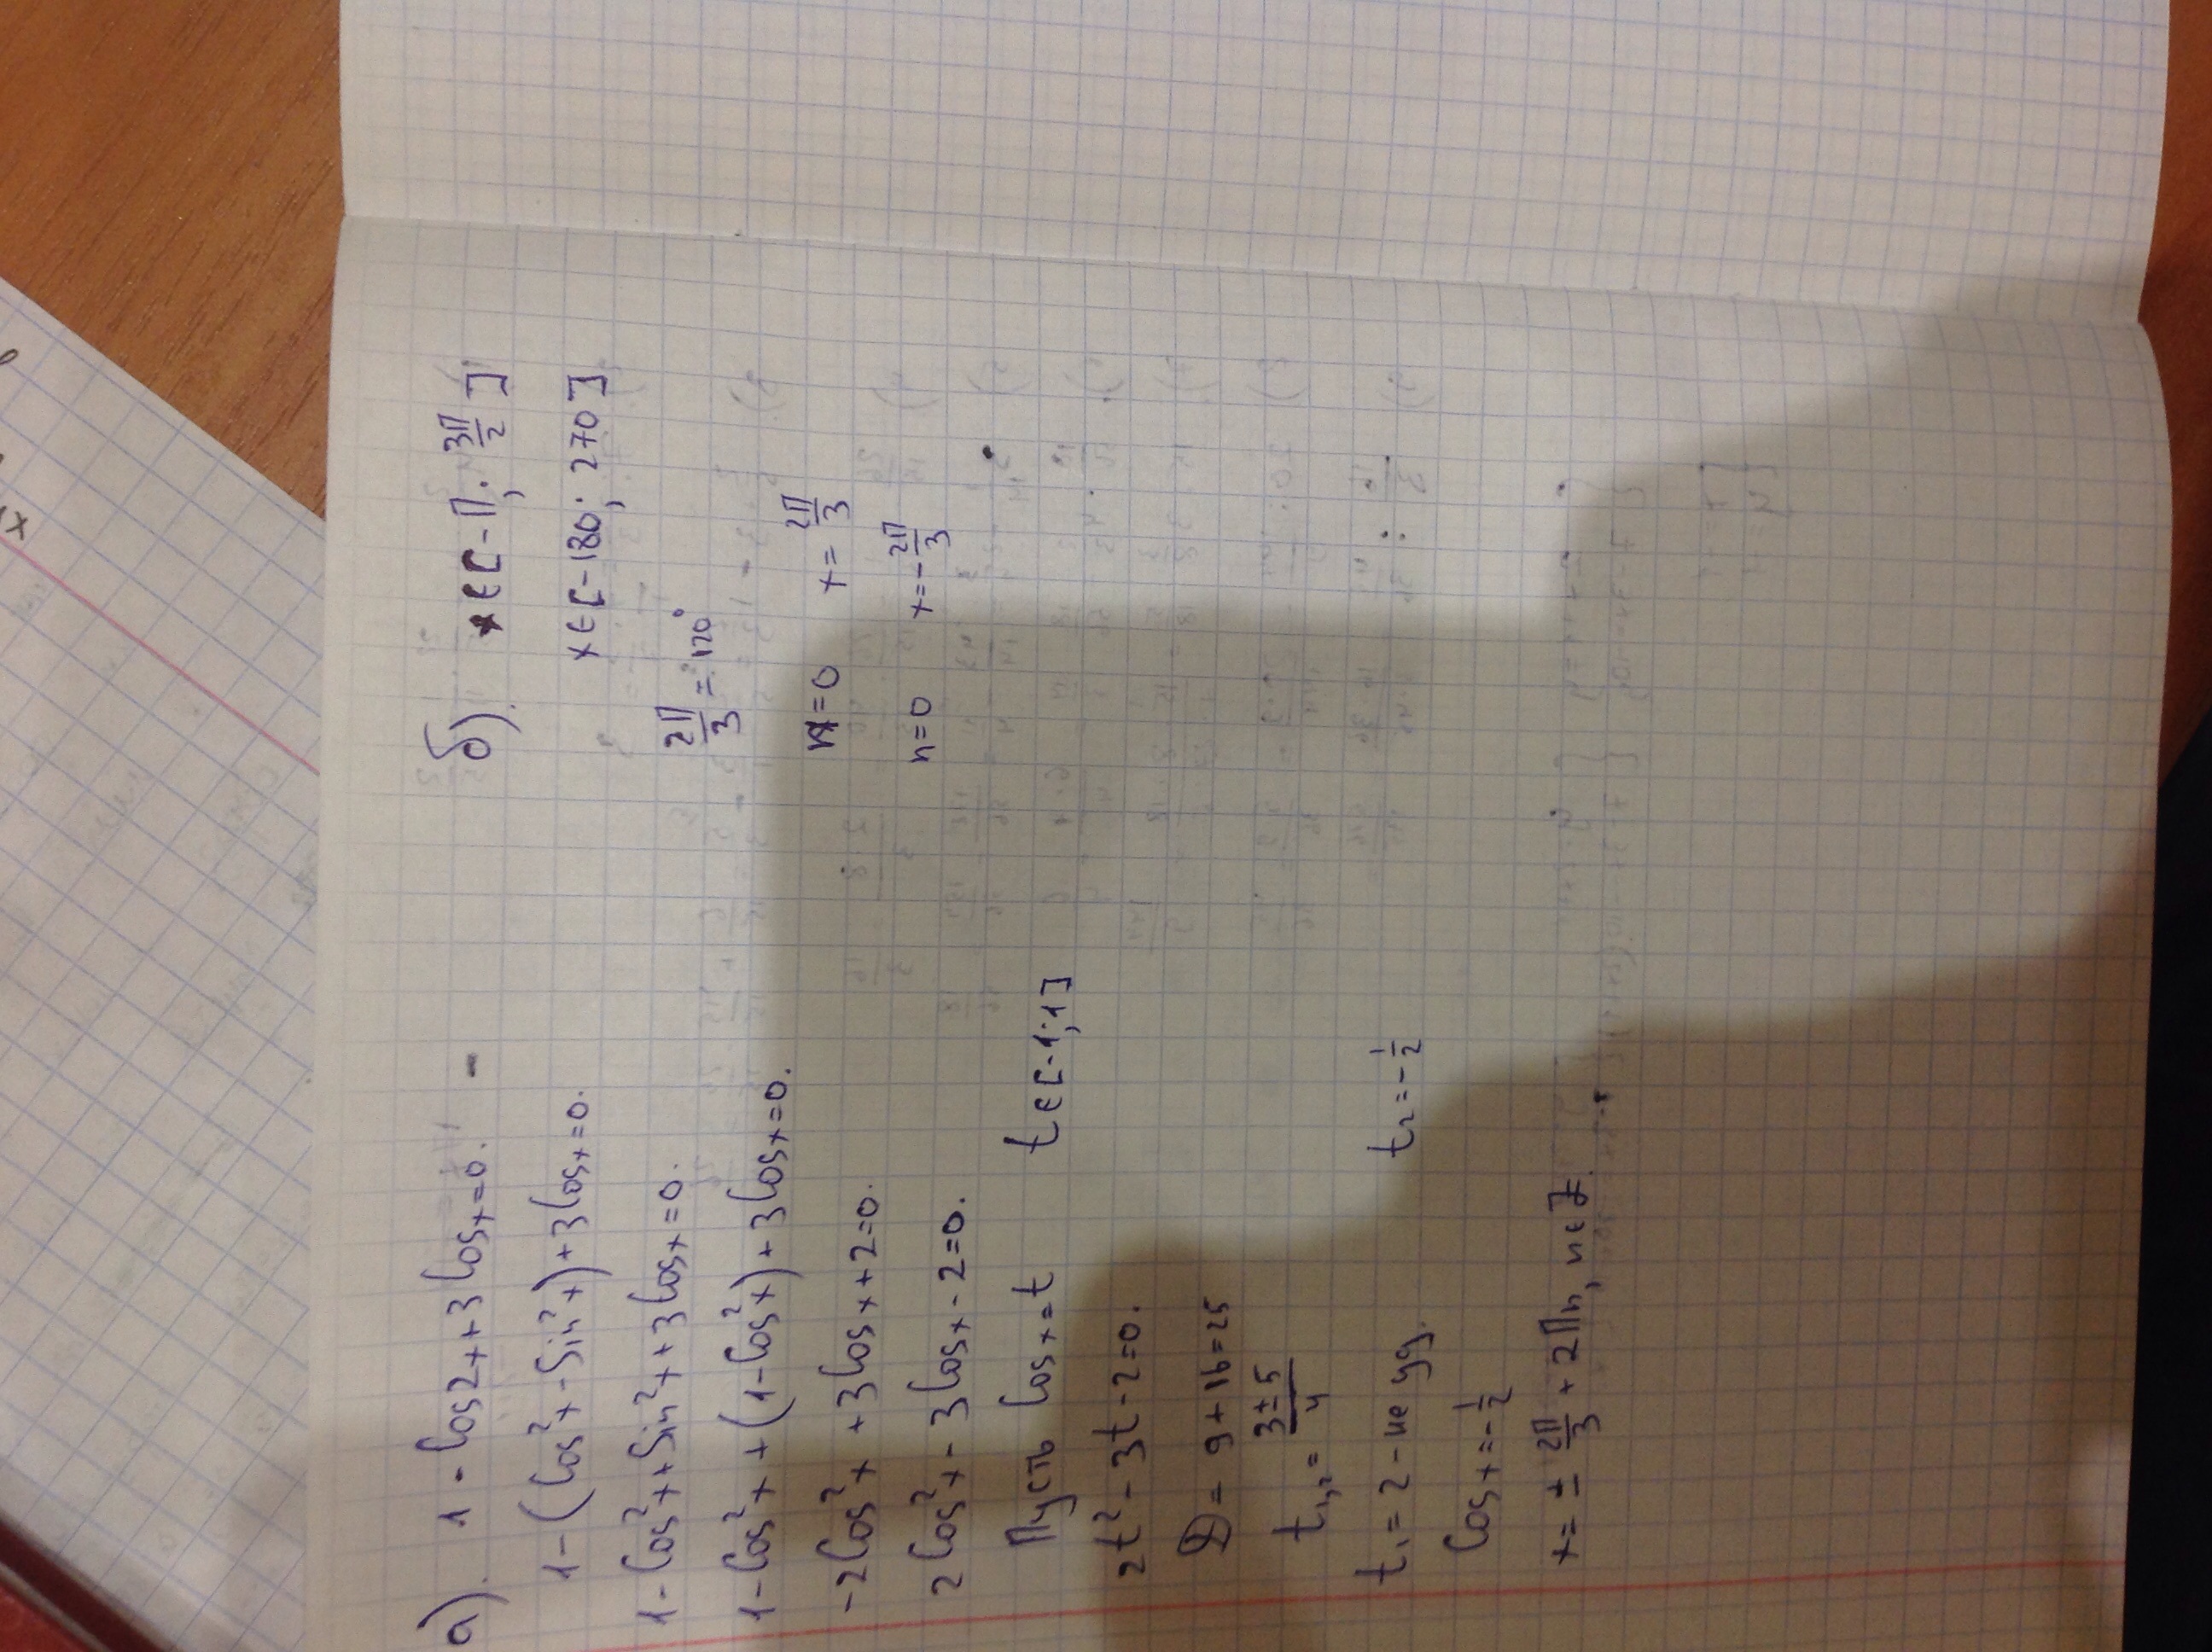 а). 1 - Cos2x+3Cosx=0.
1-(Cos²x-Sin²x)+3Cosx=0.
1-Cos²x+Sin²x+3Cosx=0.
1-Cos²x+(1-Cos²x)+3Cosx=0.
-2Cos²x+3Cosx+2=0.
2Cos²x-3Cosx-2=0.
Пусть Cosx=t t∈[-1;1]
2t²-3t-2=0.
D=9+16=25
t₁,₂=(3±5)/4
t₁=2-не уд. t₂=-1/2
Cosx=-1/2
x=±2π/3+2πn, n∈Z.
б). x∈[-π; 3π/2]
x∈[-180; 270]
2π/3=120°
n=0 x=2π/3
n=0 x=-2π/3